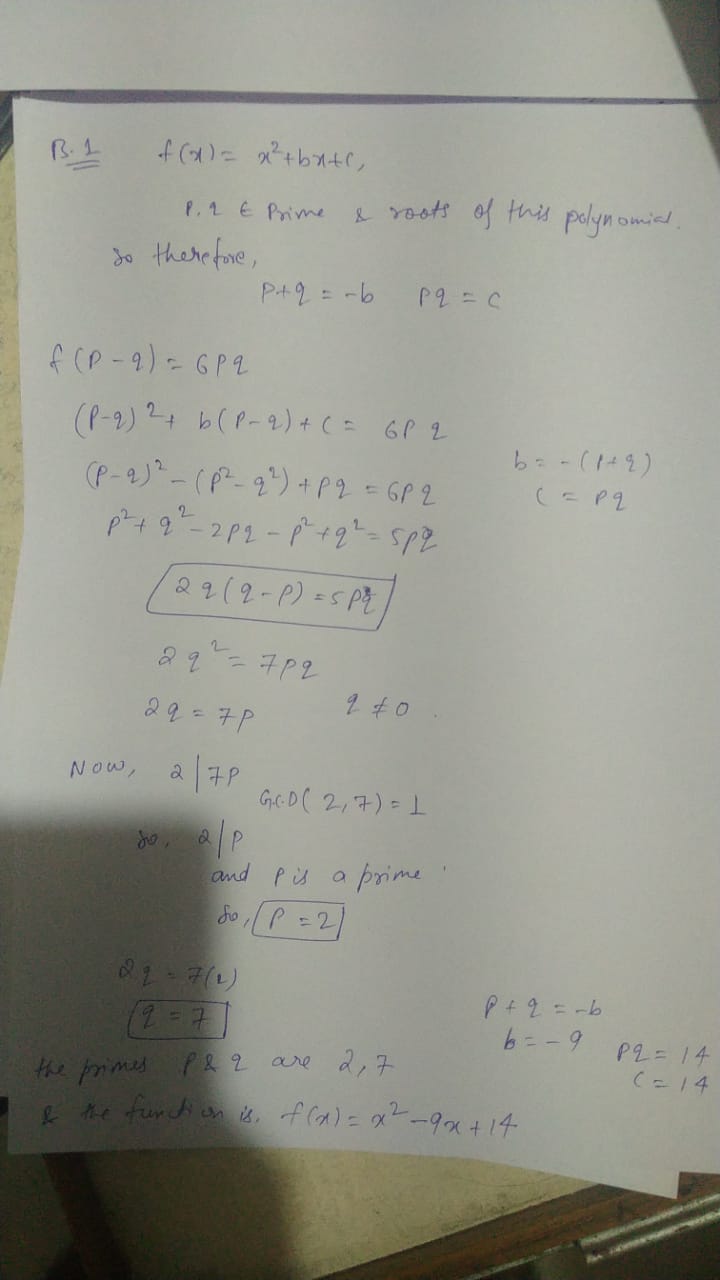 B.1 f(x) = x²+bx+c,
P, q ∈ Prime & roots of this polynomial.
so therefore,
P+q = -b Pq = c
f(P-q) = 6Pq
(P-q)²+ b(P-q)+c = 6Pq
b = -(P+q)
(P-q)² - (P²-q²) + Pq = 6Pq
c = Pq
P²+q²-2Pq-P²+q² = 5Pq
2q(q-P) = 5Pq
2q² = 7Pq
2q = 7P q ≠ 0.
Now, 2|7P
G.C.D(2,7) = 1
so, 2|P
and P is a prime.
So, P = 2
2q = 7(2)
q = 7
P+q = -b
b = -9
Pq = 14
c = 14
the primes P & q are 2,7
& the function is, f(x) = x²-9x+14